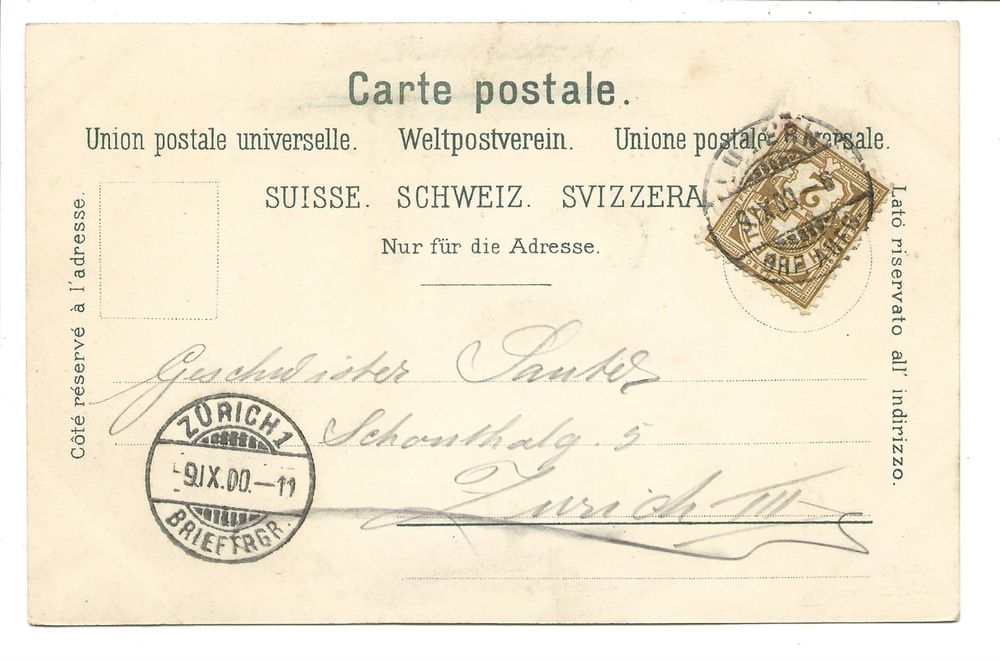 Carte postale.
Union postale universelle. Weltpostverein. Unione postale
SUISSE. SCHWEIZ. SVIZZERA
Nur für die Adresse.
Côté réservé à l'adresse.
Lato riservato all' indirizzo.
LUZERN
9.IX.00.
2
Geschwister
Schonthalg. 5
Zürich III
ZÜRICH 1
-9.IX.00.-11
BRIEFTRGR.